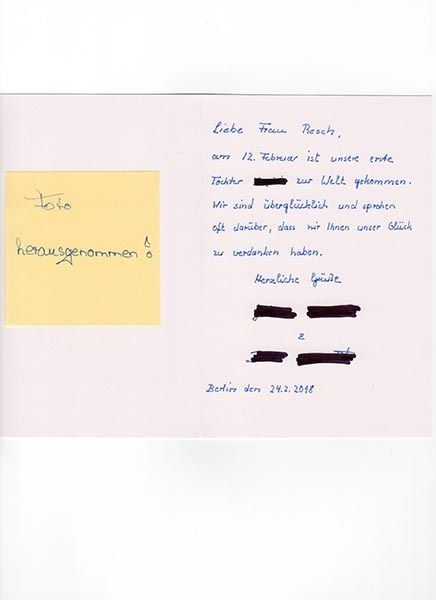 Foto
herausgenommen!
Liebe Frau Resch,
am 12. Februar ist unsere erste
Tochter zur Welt gekommen.
Wir sind überglücklich und sprechen
oft darüber, dass wir Ihnen unser Glück
zu verdanken haben.
Herzliche Grüße
&
Berlin den 24.2.2018